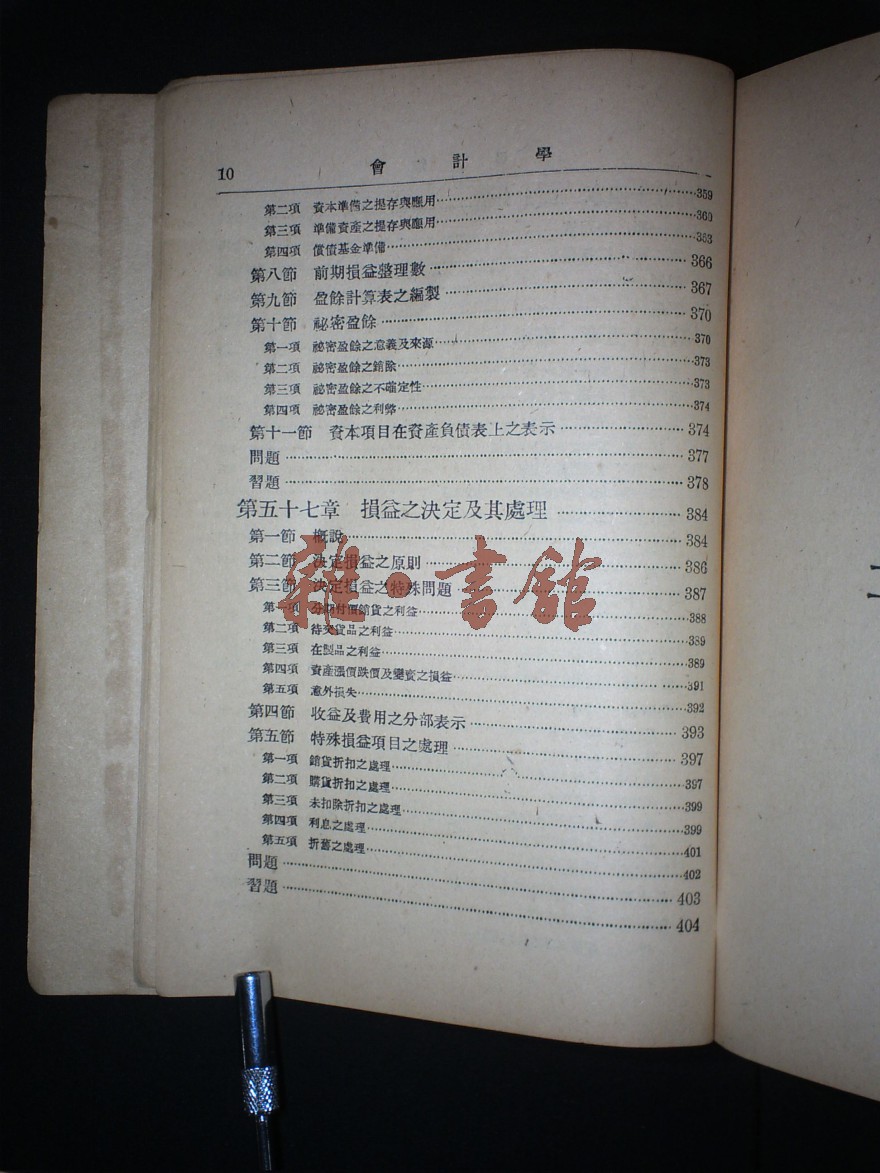 10 會計學
第二項 資本準備之提存與應用 359
第三項 準備資產之提存與應用 360
第四項 償債基金準備 363
第八節 前期損益整理數 366
第九節 盈餘計算表之編製 367
第十節 祕密盈餘 370
第一項 祕密盈餘之意義及來源 370
第二項 祕密盈餘之銷除 373
第三項 祕密盈餘之不確定性 373
第四項 祕密盈餘之利弊 374
第十一節 資本項目在資產負債表上之表示 374
問題 377
習題 378
第五十七章 損益之決定及其處理 384
第一節 概說 384
第二節 決定損益之原則 386
第三節 決定損益之特殊問題 387
第一項 分期付價銷貨之利益 388
第二項 待交貨品之利益 389
第三項 在製品之利益 389
第四項 資產漲價跌價及變賣之損益 391
第五項 意外損失 392
第四節 收益及費用之分部表示 393
第五節 特殊損益項目之處理 397
第一項 銷貨折扣之處理 397
第二項 購貨折扣之處理 399
第三項 未扣除折扣之處理 399
第四項 利息之處理 401
第五項 折舊之處理 402
問題 403
習題 404
雜·書館